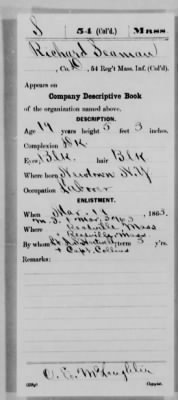 S 54 (Col'd.) Mass
Richard Seaman
, Co. D, 54 Reg't Mass. Inf. (Col'd).
Appears on
Company Descriptive Book
of the organization named above.
DESCRIPTION.
Age 19 years; height 5 feet 3 inches.
Complexion Dk
Eyes Blk; hair Blk
Where born Newtown N.Y
Occupation Laborer
ENLISTMENT.
When Mar. 11, 1863.
Where Readville, Mass
Readville, Mass
By whom; term 3 y'rs.
& Capt. Collins
Remarks:
Copyist.